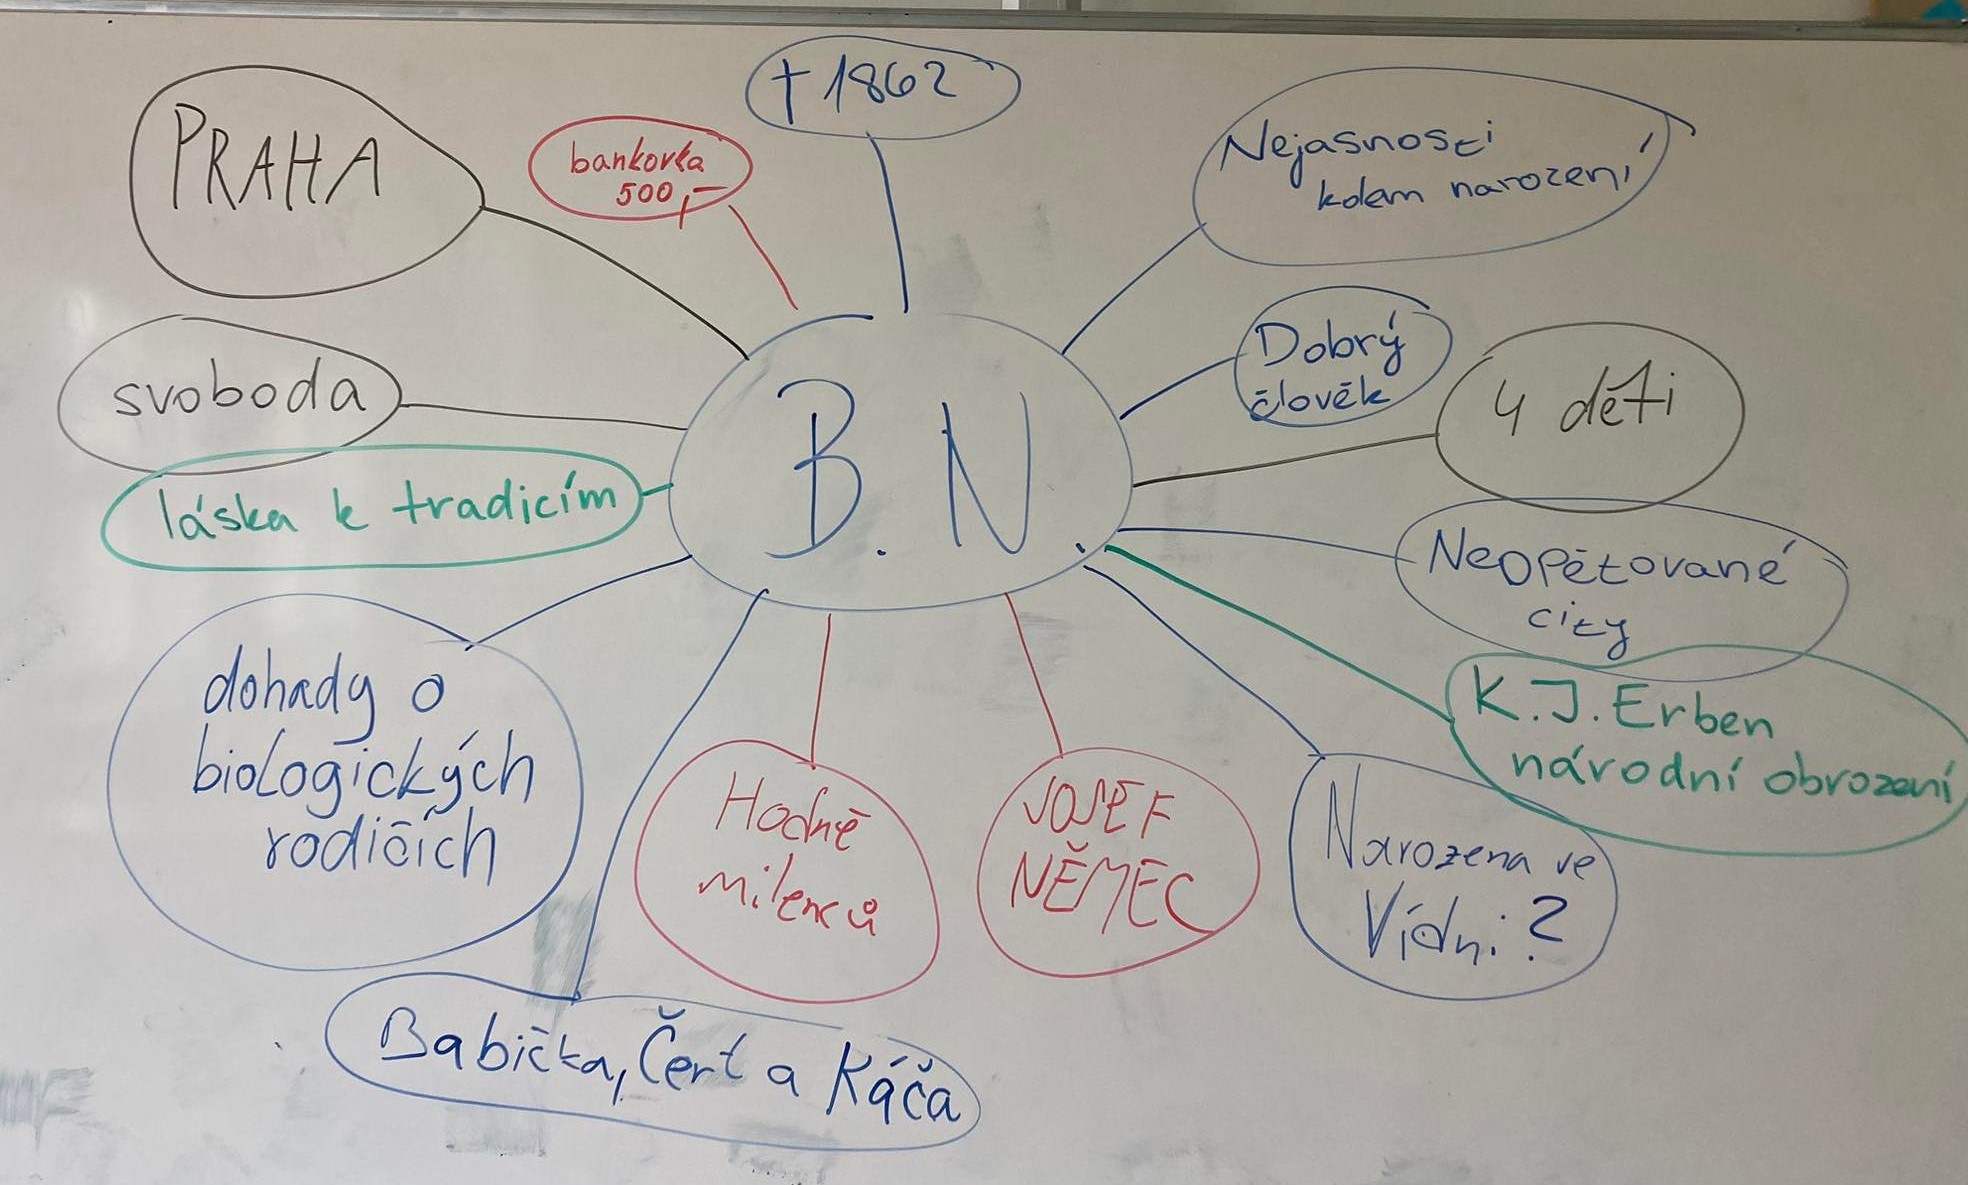 † 1862
PRAHA
bankovka
500,-
Nejasnosti
kolem narození
svoboda
Dobrý
člověk
4 děti
B. N.
láska k tradicím
Neopětované
city
dohady o
biologických
rodičích
K. J. Erben
národní obrození
Hodně
milenců
JOSEF
NĚMEC
Narozena ve
Vídni?
Babička, Čert a Káča